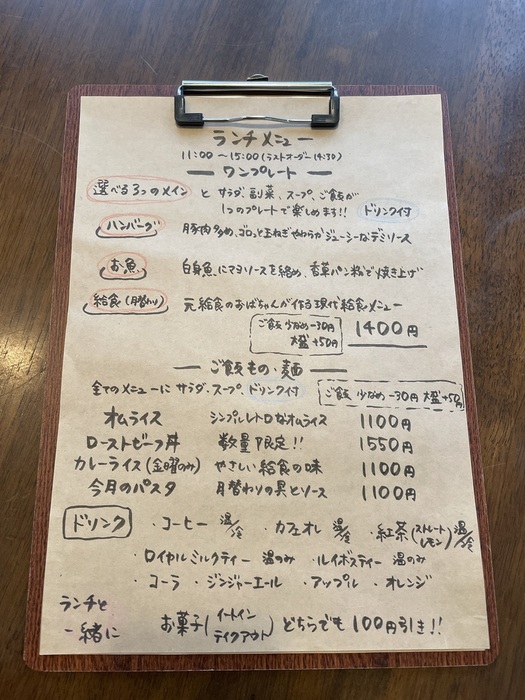 ランチメニュー
11:00〜15:00(ラストオーダー14:30)
ワンプレート
選べる3つのメイン と サラダ、副菜、スープ、ご飯が
1つのプレートで楽しめます!! ドリンク付
ハンバーグ 豚肉多め、ゴロッと玉ねぎやわらかジューシーなデミソース
お魚 白身魚にマヨソースを絡め、香草パン粉で焼き上げ
給食(月替わり) 元給食のおばちゃんが作る現代給食メニュー
ご飯 少なめ-30円
大盛+50円 1400円
ご飯もの・麺
全てのメニューに サラダ・スープ、ドリンク付 ご飯 少なめ-30円 大盛+50円
オムライス シンプルレトロなオムライス 1100円
ローストビーフ丼 数量限定!! 1550円
カレーライス(金曜のみ) やさしい給食の味 1100円
今月のパスタ 月替わりの具とソース 1100円
ドリンク ・コーヒー 温/冷 ・カフェオレ 温/冷 ・紅茶(ストレート レモン)温/冷
・ロイヤルミルクティー 温のみ ・ルイボスティー 温のみ
・コーラ ・ジンジャーエール ・アップル ・オレンジ
ランチと
一緒に お菓子(イートイン テイクアウト)どちらでも100円引き!!